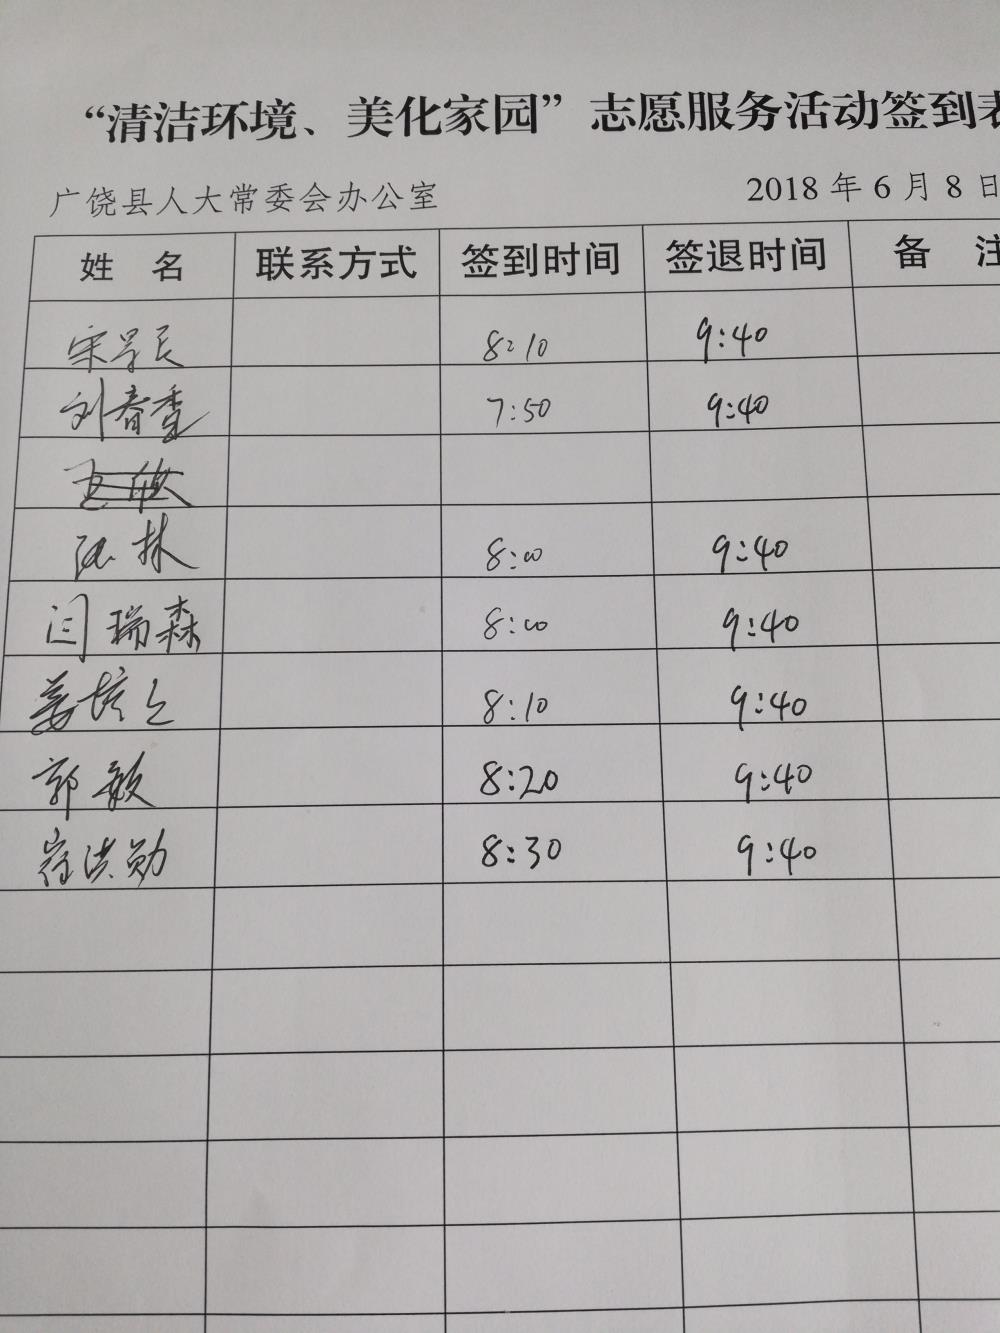 “清洁环境、美化家园”志愿服务活动签到表
广饶县人大常委会办公室 2018年6月8日
姓 名 联系方式 签到时间 签退时间 备 注
宋学良 8:10 9:40
刘春香 7:50 9:40
林 8:00 9:40
闫瑞森 8:00 9:40
姜培 8:10 9:40
郭敏 8:20 9:40
崔洪勋 8:30 9:40